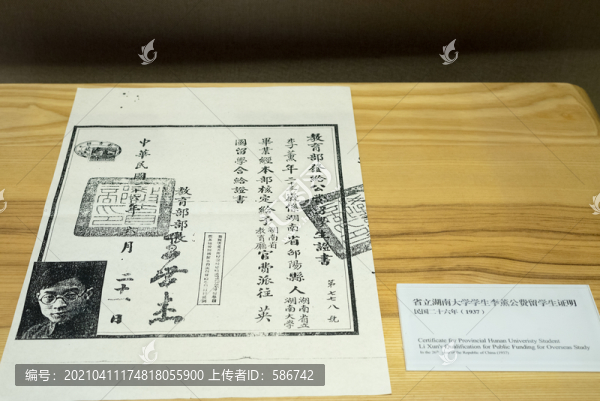 教育部發給公費留學生證書
第七七八號
李薰年二十歲係湖南省邵陽縣人 湖南省立
湖南大學
畢業經本部核定給予 湖南省
教育廳 官費派往英
國留學合給證書
教育部部長
中華民國二十六年 月二十一日
省立湖南大学学生李薰公费留学生证明
民国二十六年(1937)
Certificate for Provincial Hunan University Student
Li Xun's Qualification for Public Funding for Overseas Study
In the 26th Year of the Republic of China (1937)
编号:20210411174818055900 上传者ID:586742